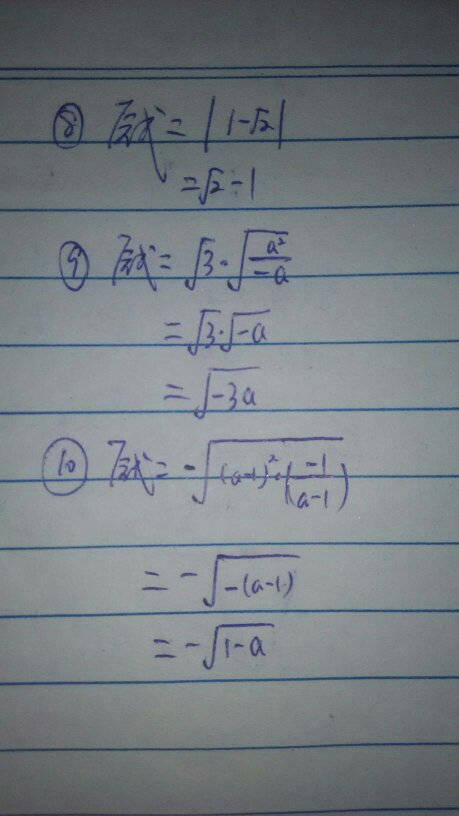 ⑧ 原式 = |1-√2|
= √2-1
⑨ 原式 = √3·√(a²/-a)
= √3·√-a
= √-3a
⑩ 原式 = -√((a-1)²·(-1/(a-1)))
= -√-(a-1)
= -√1-a